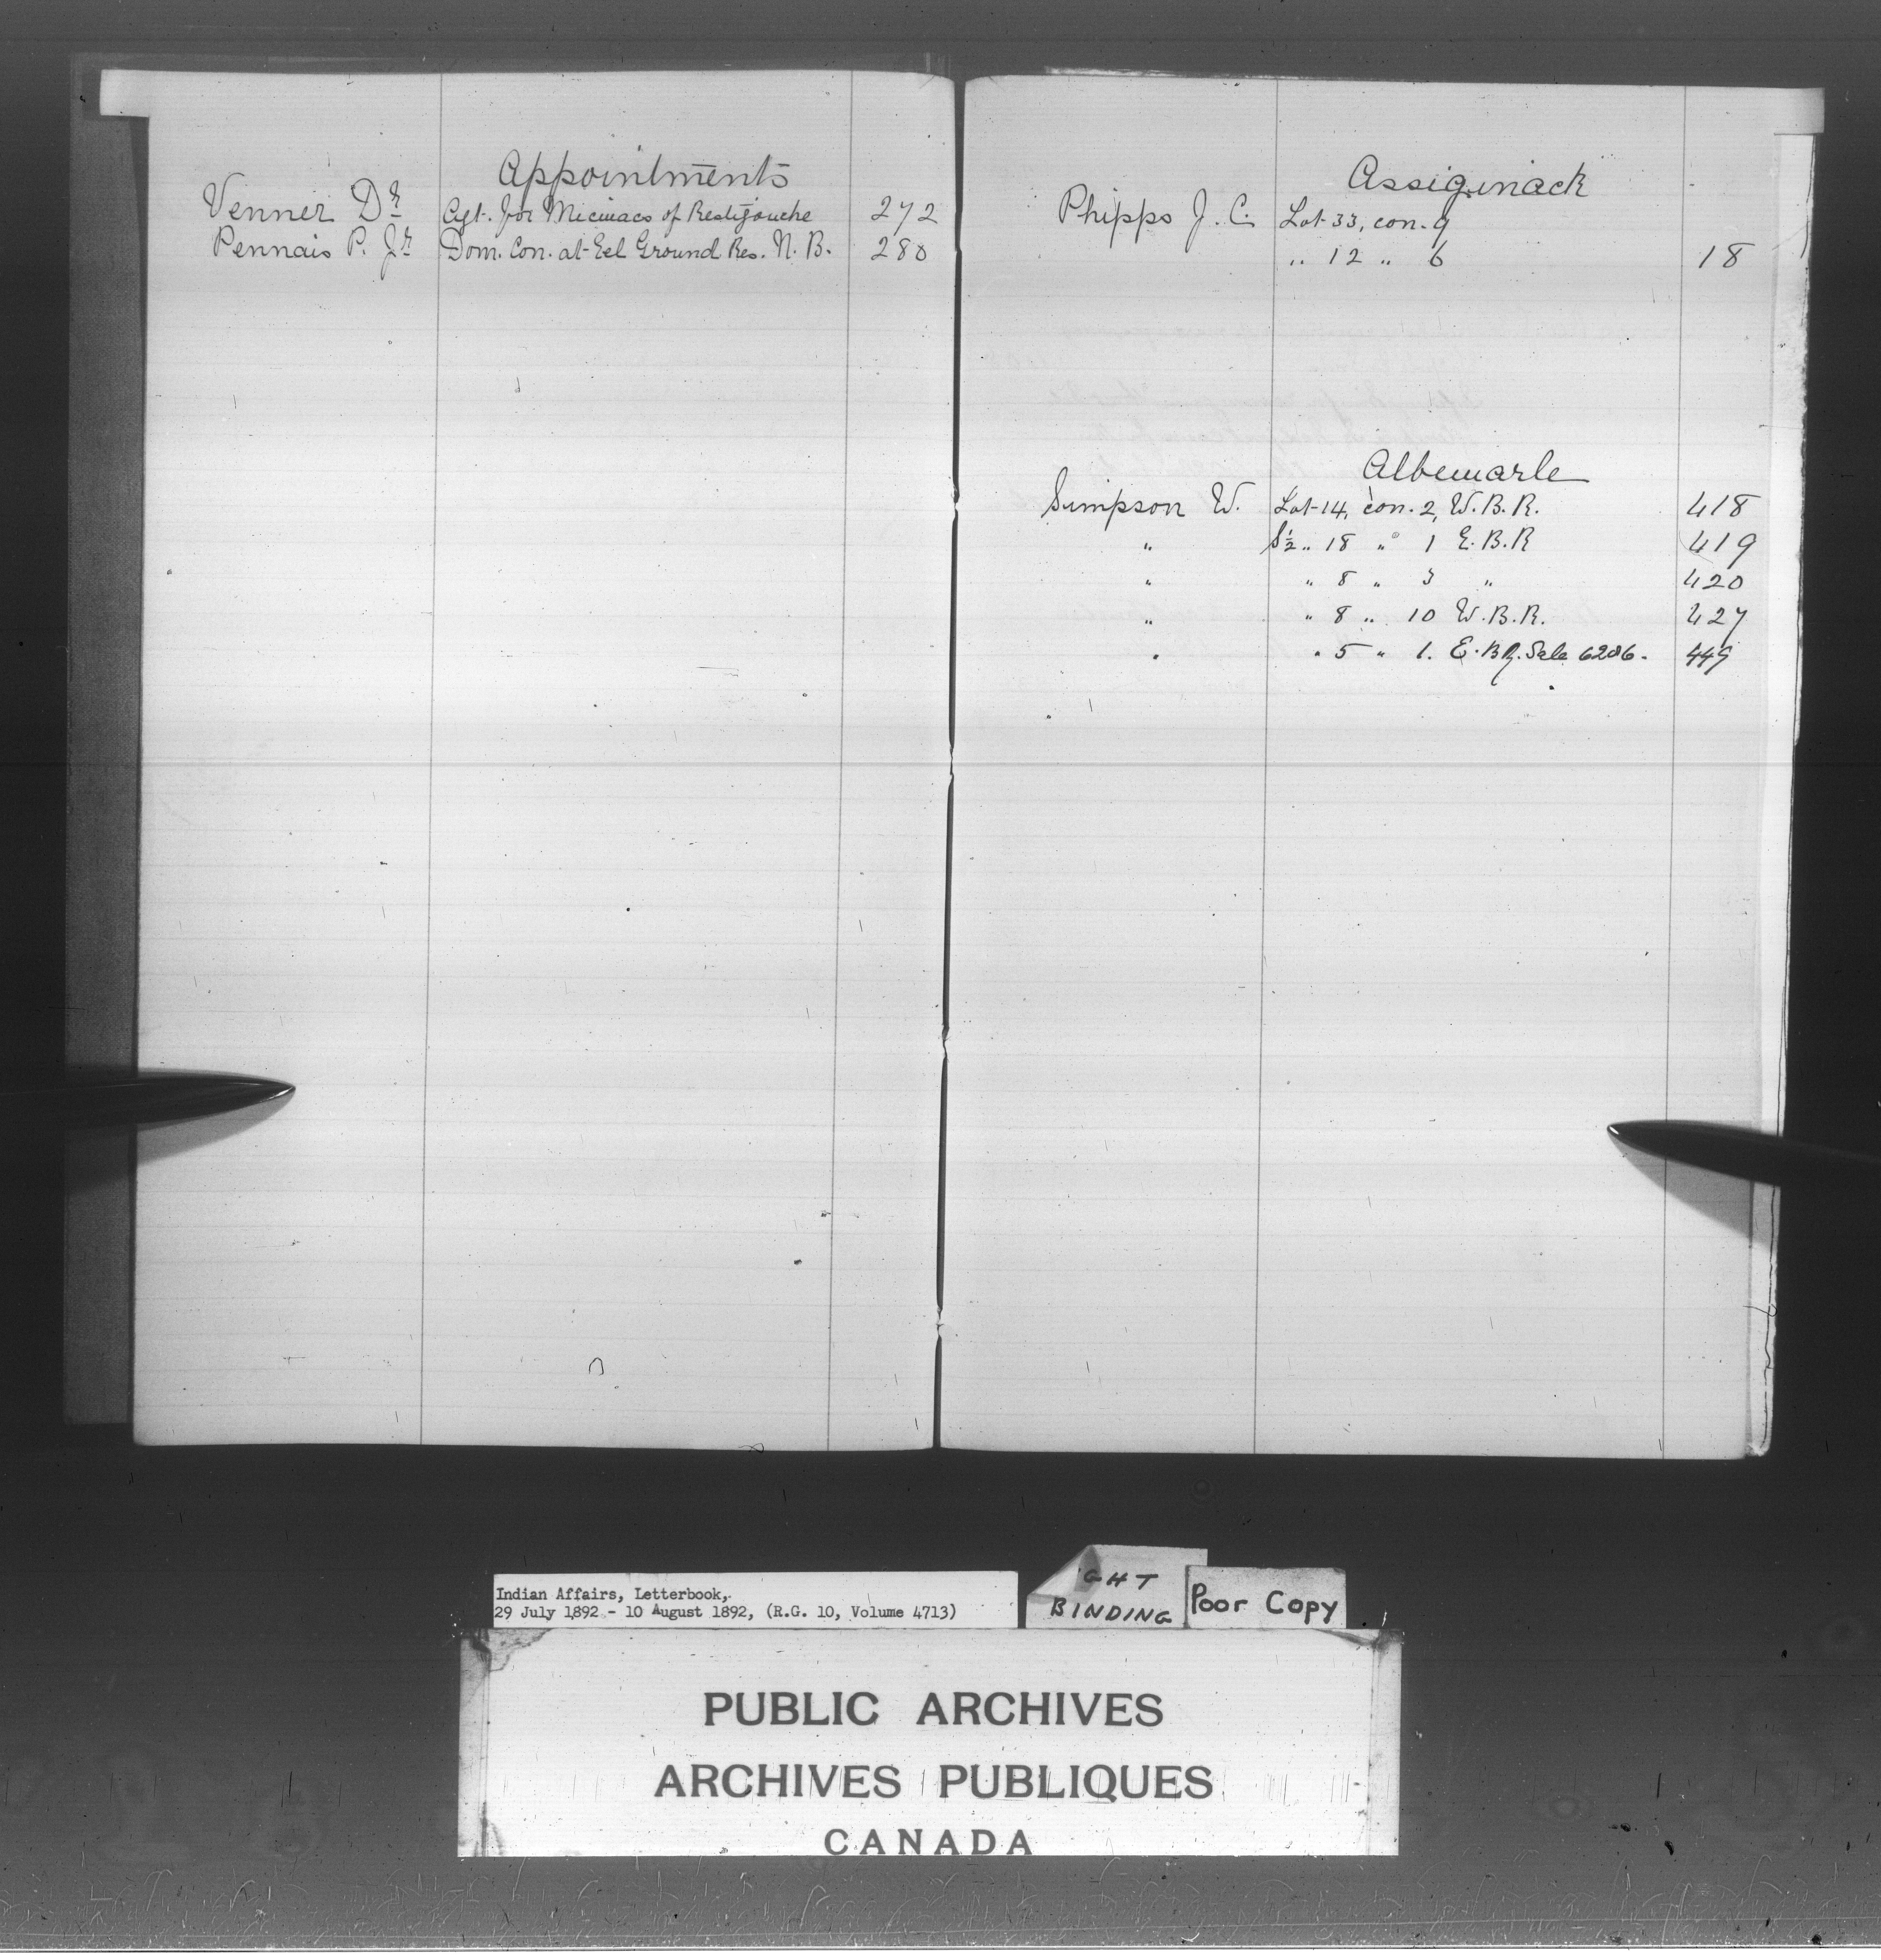 Appointments
Venner Dr. Agt. for Micmacs of Restigouche 272
Pennais P. Jr. Dom. Con. at Eel Ground Res. N. B. 280
Assiginack
Phipps J. C. Lot 33, con. 9
" 12 " 6 18
Albemarle
Simpson W. Lot 14, con. 2, W. B. R. 418
" S½ " 18 " 1 E. B. R 419
" " 8 " 3 " 420
" " 8 " 10 W. B. R. 427
" " 5 " 1. E. B R. Sale 6286. 449
Indian Affairs, Letterbook,
29 July 1892 - 10 August 1892, (R.G. 10, Volume 4713)
GHT
BINDING
Poor Copy
PUBLIC ARCHIVES
ARCHIVES PUBLIQUES
CANADA